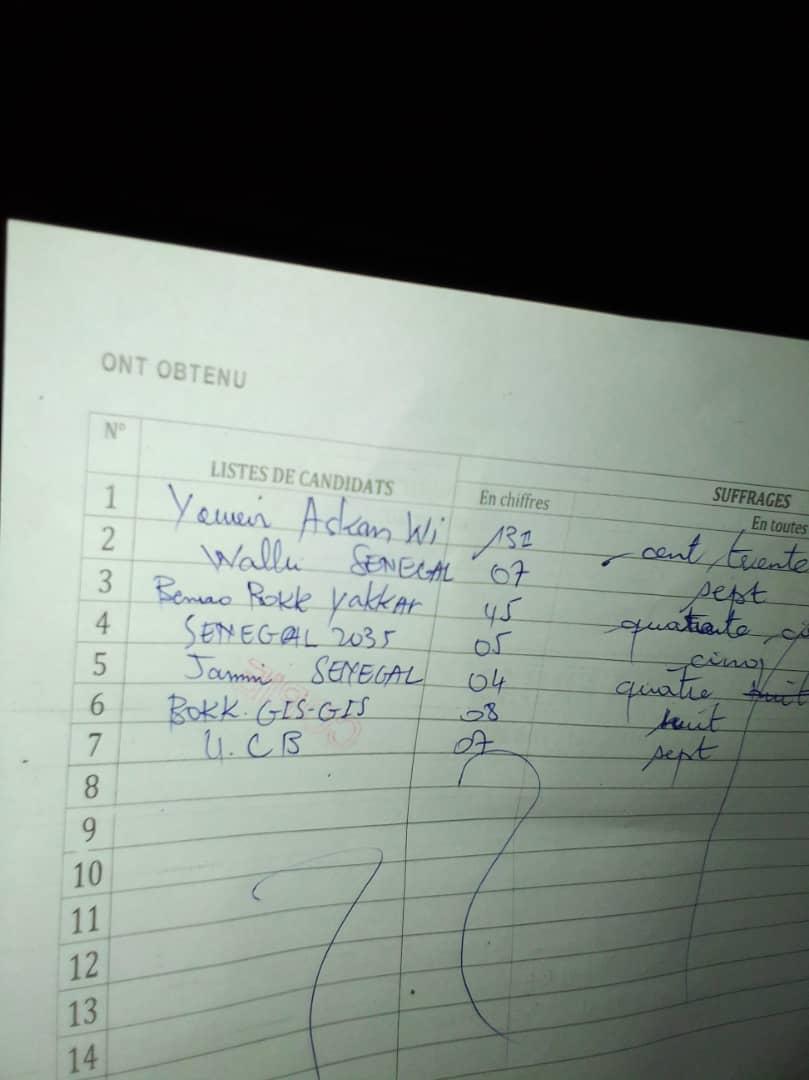 ONT OBTENU
N° LISTES DE CANDIDATS SUFFRAGES
En chiffres En toutes
1 Yewwi Askan Wi 131 cent trente
2 Wallu SENEGAL 07 sept
3 Benno Bokk Yakkar 45 quarante
4 SENEGAL 2035 05 cinq
5 Jammi SENEGAL 04 quatre huit
6 BOKK.GIS-GIS 08 huit
7 U.CB 07 sept
8
9
10
11
12
13
14